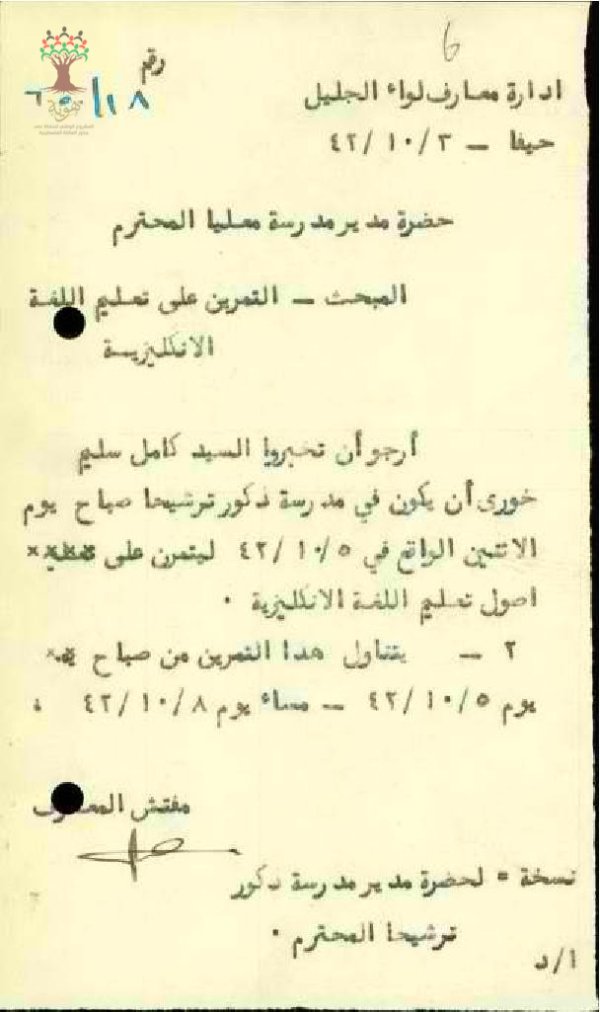 6
رقم
٦٥/١٨
ادارة معارف لواء الجليل
حيفا – ٤٢/١٠/٣
حضرة مدير مدرسة معليا المحترم
المبحث – التمرين على تعليم اللغة
الانكليزية
أرجو أن تخبروا السيد كامل سليم
خورى أن يكون في مدرسة ذكور ترشيحا صباح يوم
الاثنين الواقع في ٤٢/١٠/٥ ليتمرن على
اصول تعليم اللغة الانكليزية .
٢ – يتناول هذا التمرين من صباح
يوم ٤٢/١٠/٥ – مساء يوم ٤٢/١٠/٨ .
مفتش المعارف
نسخة = لحضرة مدير مدرسة ذكور
ترشيحا المحترم .
ا/د
هوية